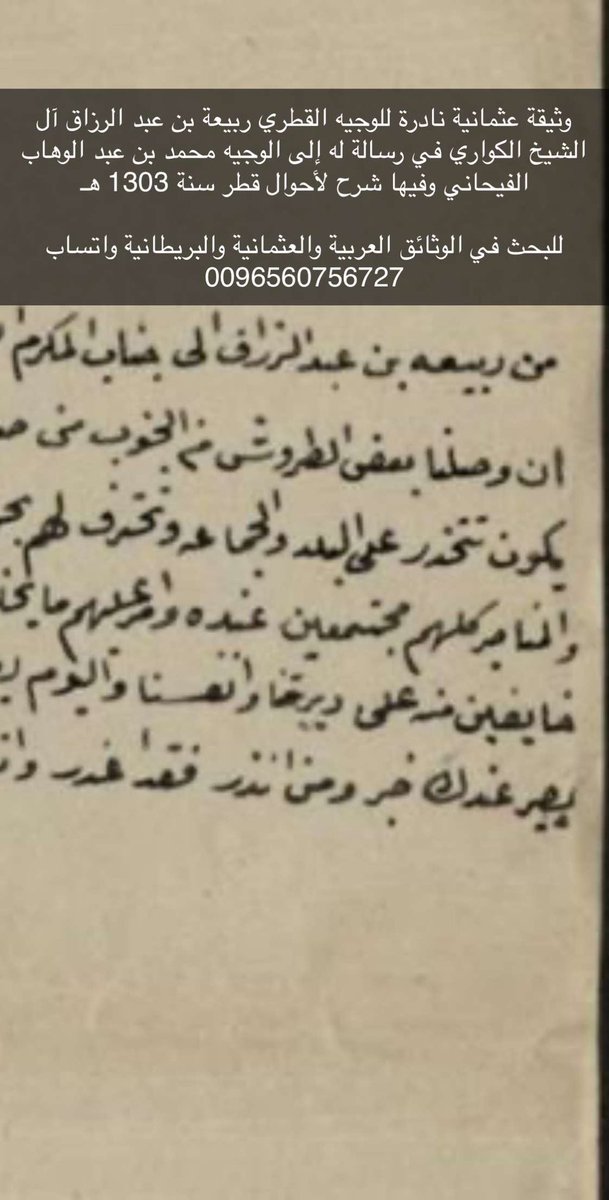 وثيقة عثمانية نادرة للوجيه القطري ربيعة بن عبد الرزاق آل
الشيخ الكواري في رسالة له إلى الوجيه محمد بن عبد الوهاب
الفيحاني وفيها شرح لأحوال قطر سنة 1303 هـ
للبحث في الوثائق العربية والعثمانية والبريطانية واتساب
0096560756727
من ربيعه بن عبد الرزاق الى جناب المكرم
ان وصلنا بعض الطروش من الجنوب من
يكون تتحذر على البلد والجماعه لهم
كلهم مجتمعين عنده عليهم
خايفين منه على ديرتنا وانفسنا واليوم
يصير عندك خبر ومن انذر فقد اعذر